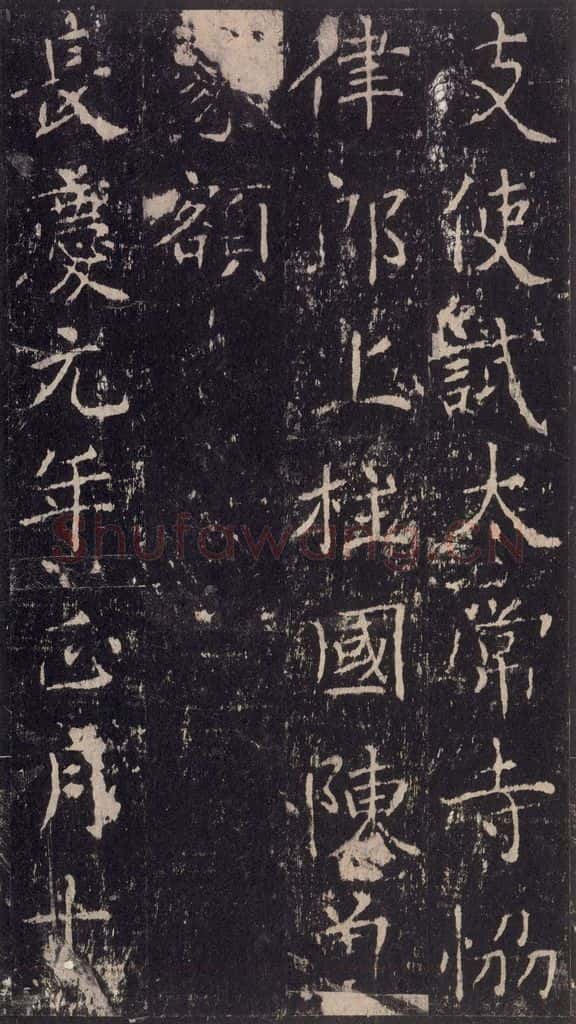 支使試太常寺恊
律郎上柱國陳
篆額
長慶元年正月十
Shufawang.CN